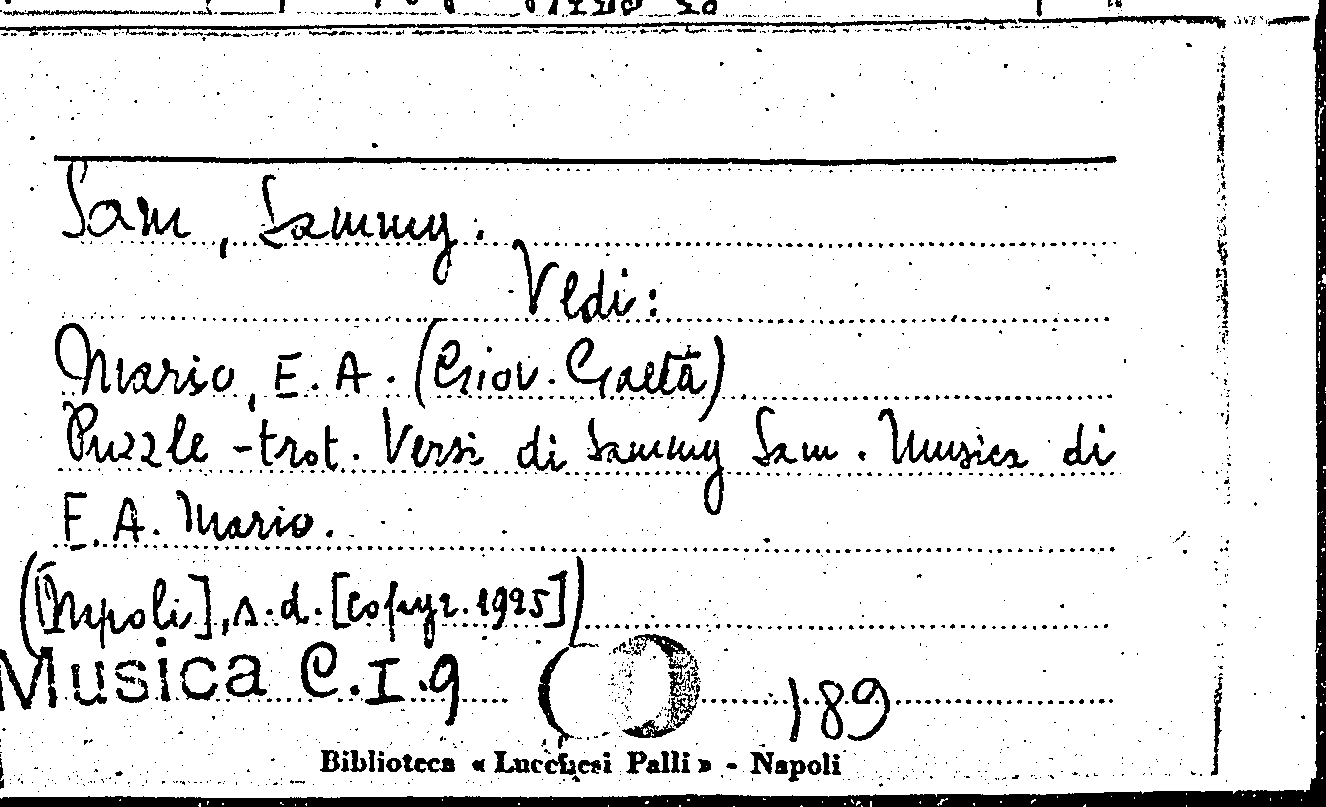 Sam, Sammy.
Vedi:
Mario, E. A. (Giov. Gaeta)
Puzzle-trot. Versi di Sammy Sam. Musica di
E. A. Mario.
([Napoli], s. d. [Copyr. 1925])
Musica C.I.9 189
Biblioteca « Lucchesi Palli » - Napoli